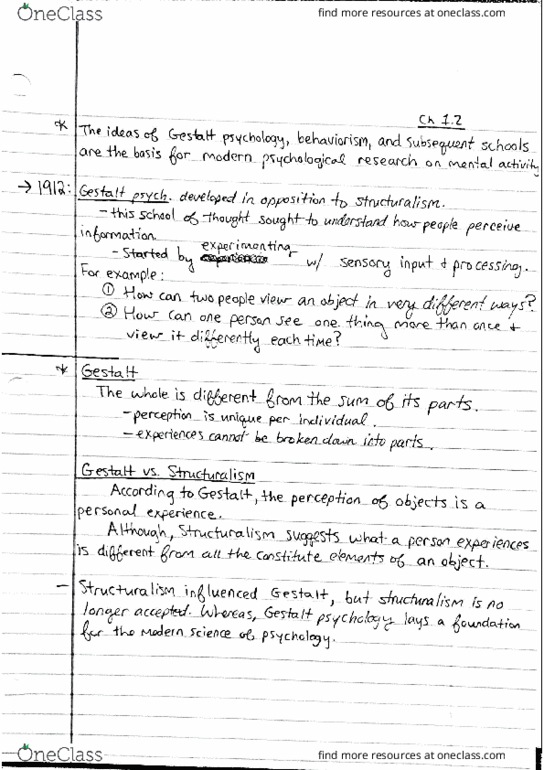 OneClass
find more resources at oneclass.com
Ch 1.2
* The ideas of Gestalt psychology, behaviorism, and subsequent schools
are the basis for modern psychological research on mental activity
→ 1912: Gestalt psych. developed in opposition to structuralism.
- this school of thought sought to understand how people perceive
information
- Started by experimenting w/ sensory input + processing.
For example:
① How can two people view an object in very different ways?
② How can one person see one thing more than once +
view it differently each time?
* Gestalt
The whole is different from the sum of its parts.
- perception is unique per individual.
- experiences cannot be broken down into parts.
Gestalt vs. Structuralism
According to Gestalt, the perception of objects is a
personal experience.
Although, Structuralism suggests what a person experiences
is different from all the constitute elements of an object.
- Structuralism influenced Gestalt, but structuralism is no
longer accepted. Whereas, Gestalt psychology lays a foundation
for the modern science of psychology.
OneClass
find more resources at oneclass.com